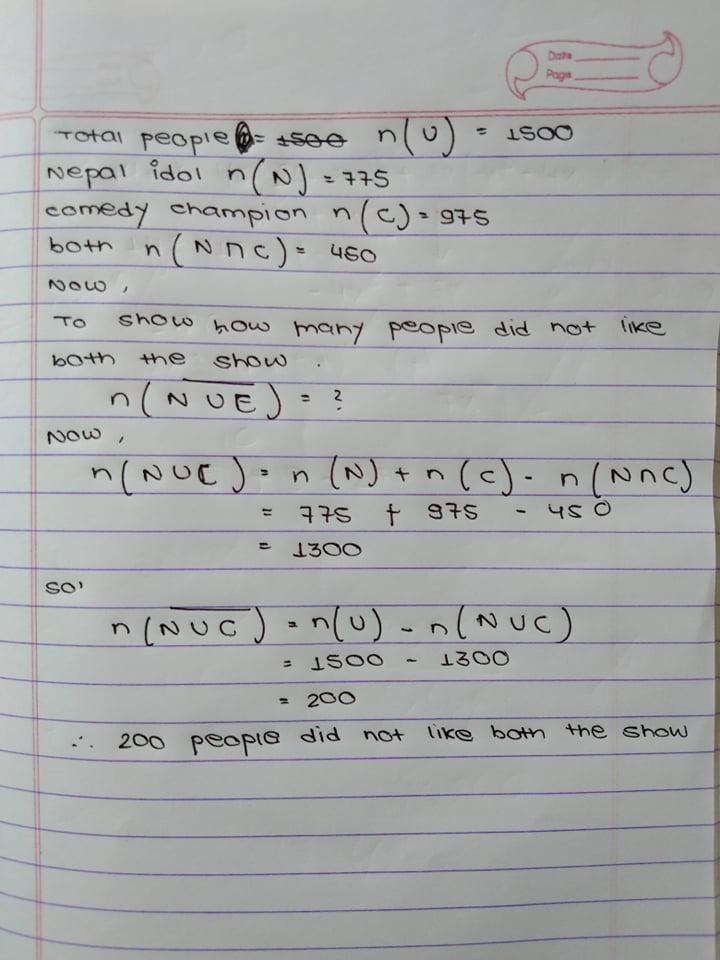 Date
Page
Total people = 1500 n(U) = 1500
Nepal idol n(N) = 775
comedy champion n(C) = 975
both n(N∩C) = 450
Now,
To show how many people did not like
both the show.
n(N̅ ̅U̅ ̅E̅) = ?
Now,
n(NUC) = n(N) + n(C) - n(N∩C)
= 775 + 975 - 450
= 1300
so,
n(N̅ ̅U̅ ̅C̅) = n(U) - n(NUC)
= 1500 - 1300
= 200
∴ 200 people did not like both the show